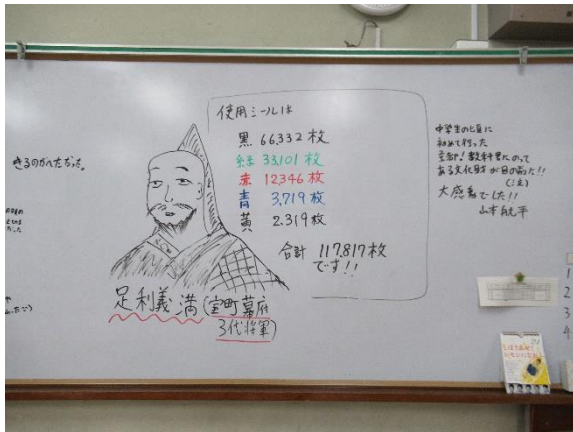 きるのかんたなった。
使用シールは
黒 66,332 枚
緑 33,101 枚
赤 12,346 枚
青 3,719 枚
黄 2,319 枚
合計 117,817 枚
です!!
足利義満(室町幕府
3代将軍)
中学生の頃に
初めて行った
京都!教科書にのって
ある文化財が目の前に!!
大感動でした!!
1
2
3
4